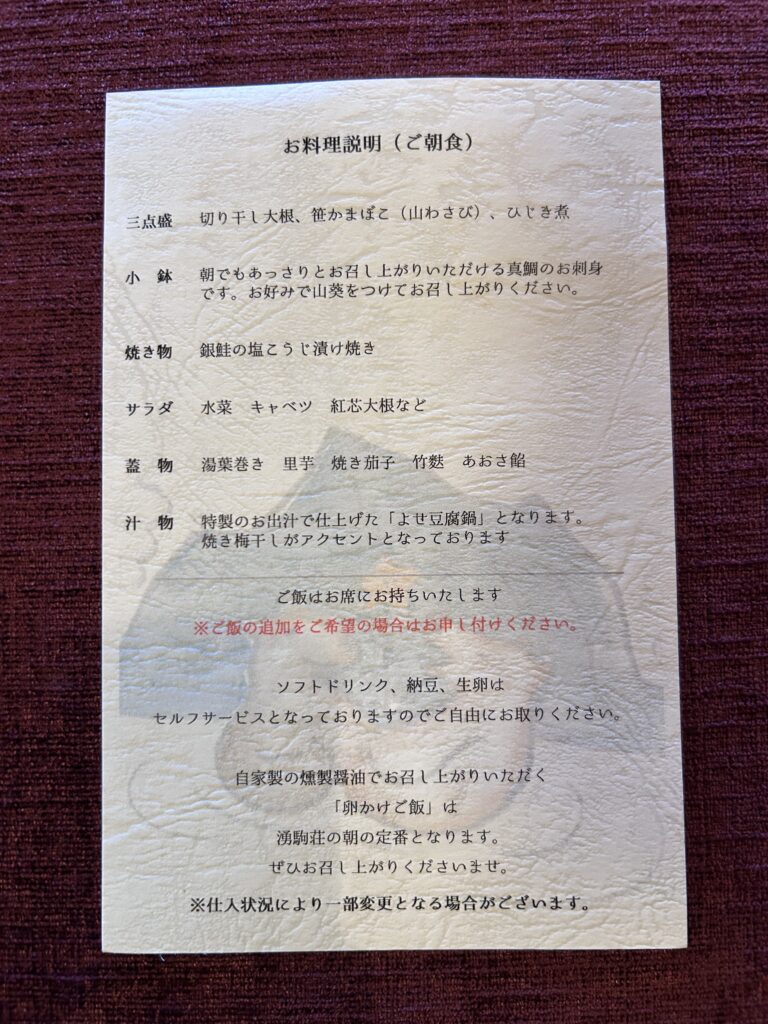 お料理説明（ご朝食）
三点盛　切り干し大根、笹かまぼこ（山わさび）、ひじき煮
小　鉢　朝でもあっさりとお召し上がりいただける真鯛のお刺身
です。お好みで山葵をつけてお召し上がりください。
焼き物　銀鮭の塩こうじ漬け焼き
サラダ　水菜　キャベツ　紅芯大根など
蓋　物　湯葉巻き　里芋　焼き茄子　竹麩　あおさ餡
汁　物　特製のお出汁で仕上げた「よせ豆腐鍋」となります。
焼き梅干しがアクセントとなっております
ご飯はお席にお持ちいたします
※ご飯の追加をご希望の場合はお申し付けください。
ソフトドリンク、納豆、生卵は
セルフサービスとなっておりますのでご自由にお取りください。
自家製の燻製醤油でお召し上がりいただく
「卵かけご飯」は
湧駒荘の朝の定番となります。
ぜひお召し上がりくださいませ。
※仕入状況により一部変更となる場合がございます。